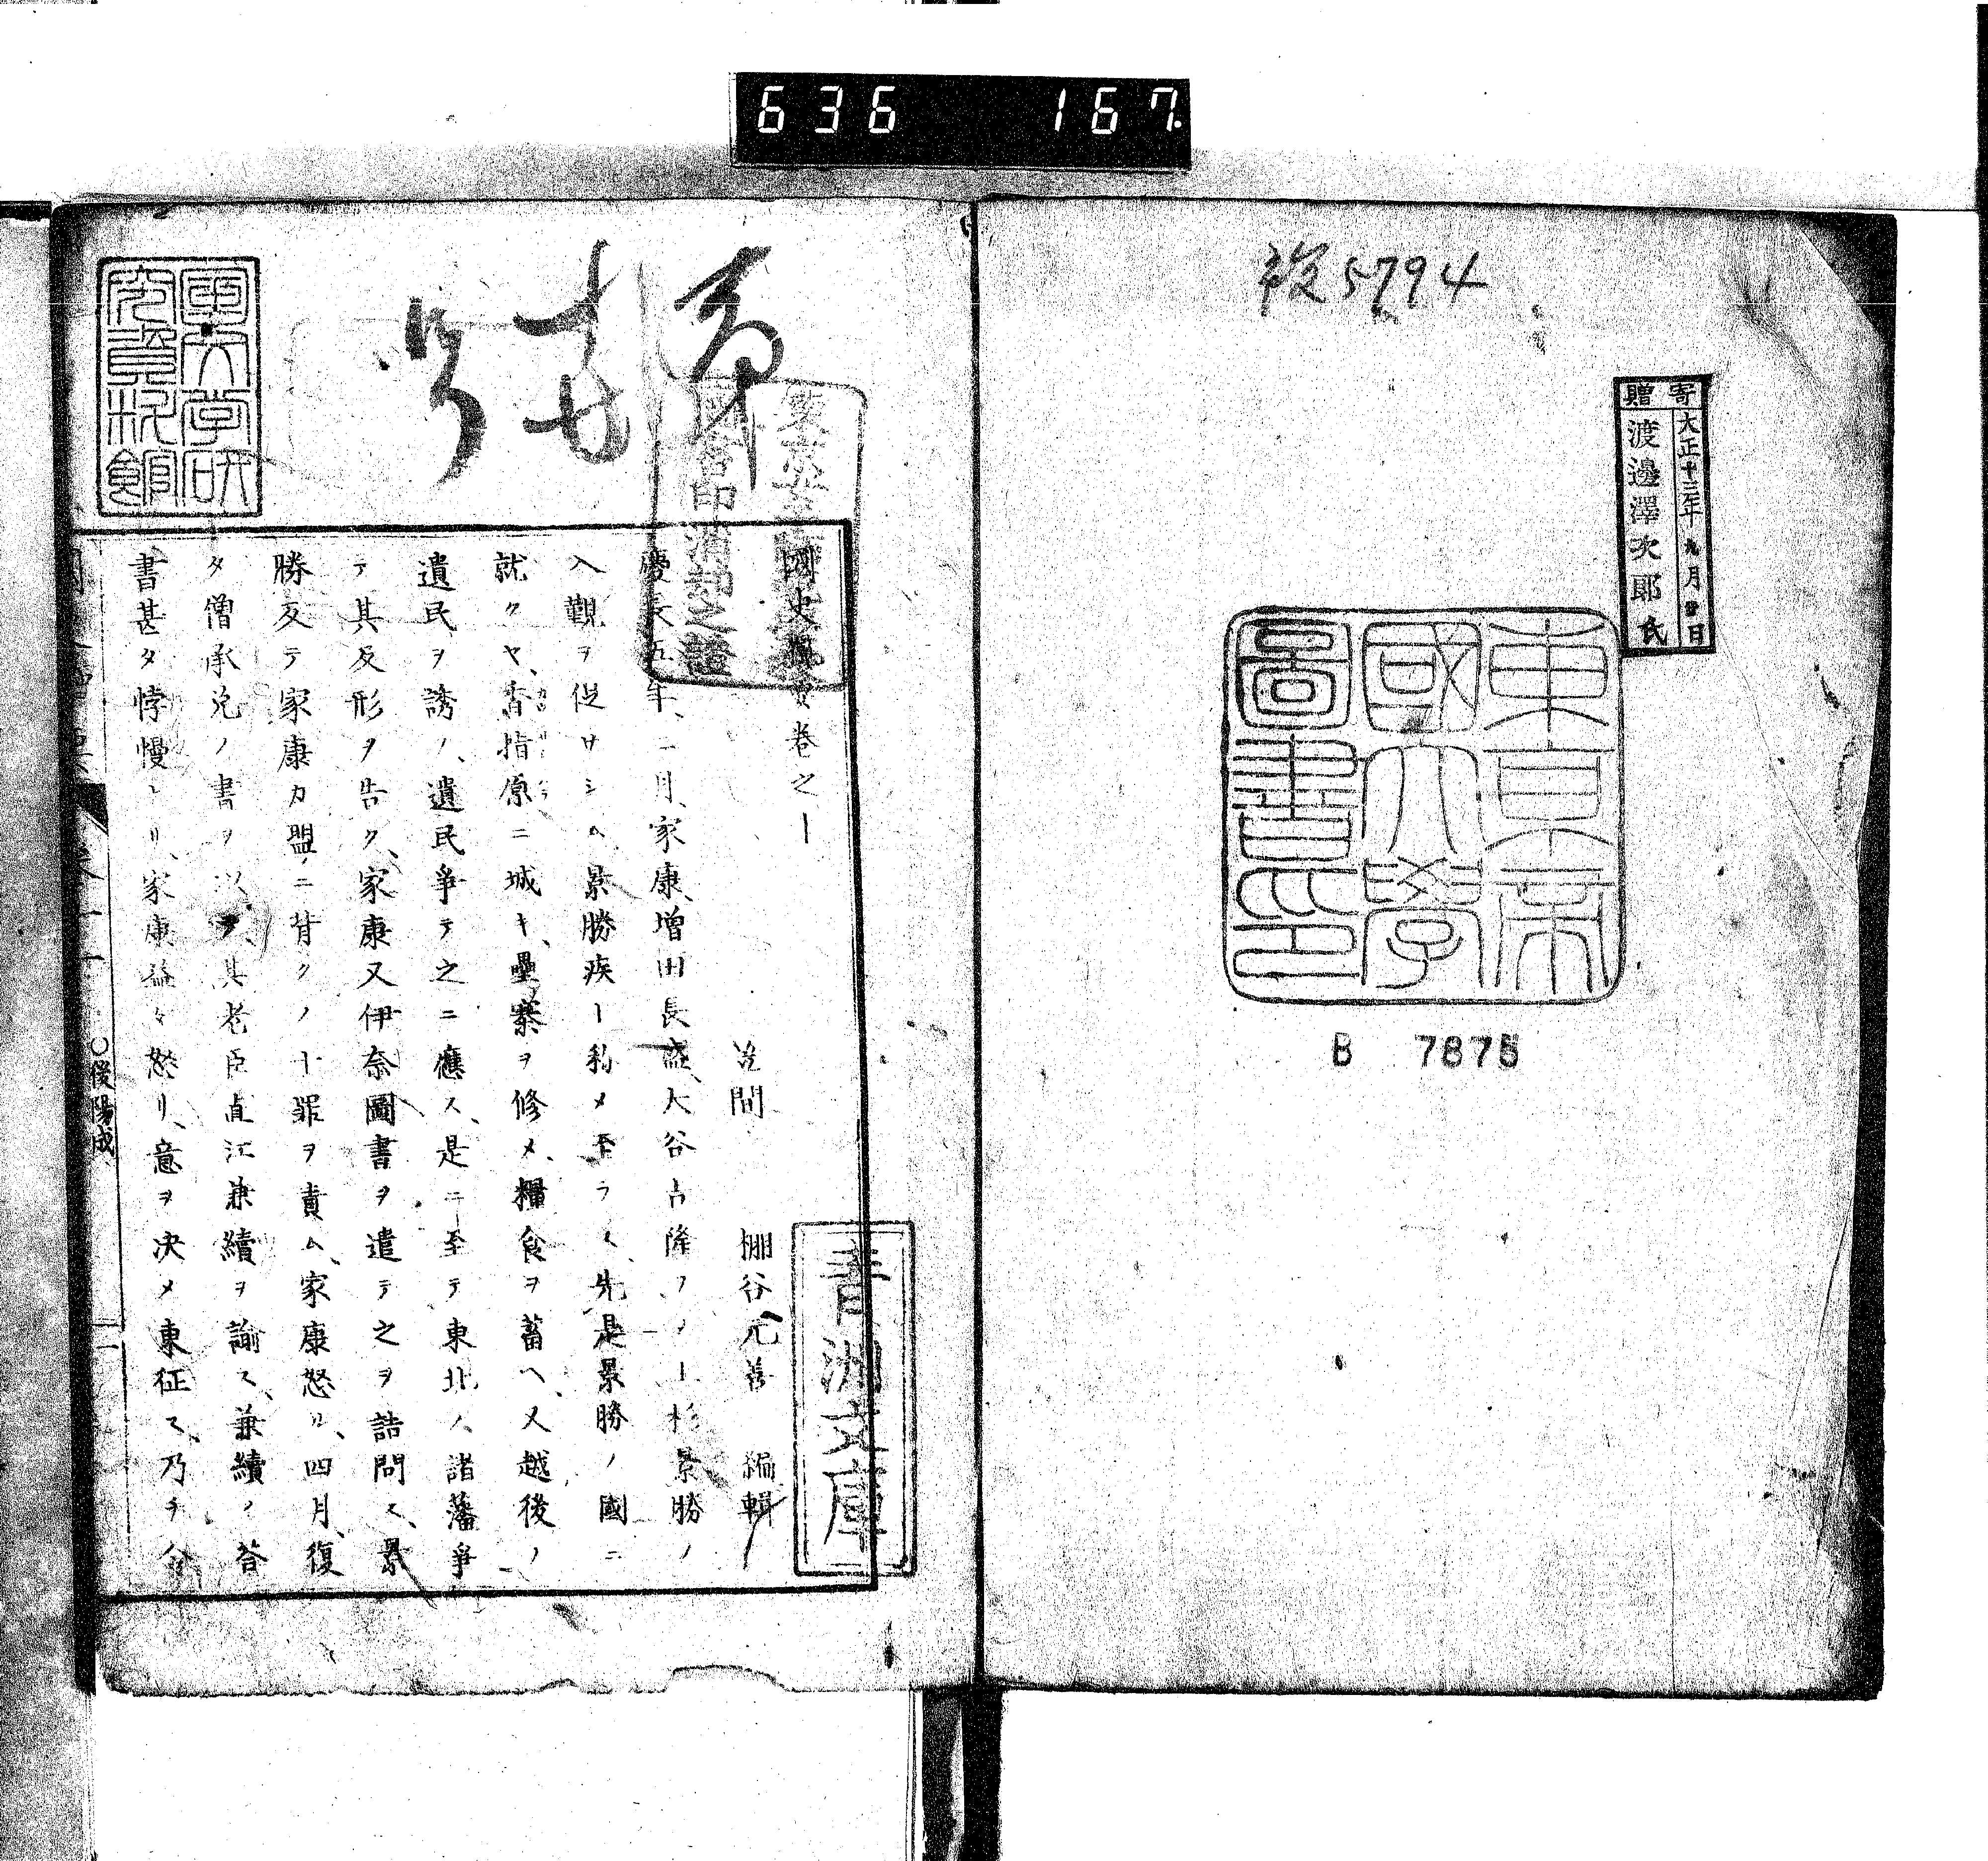 636 167.
複5794
寄贈
大正十三年九月 日
渡邊澤次郎氏
東京帝
國大學
圖書印
B 7875
國史 卷之十
笠間 棚谷元善 編輯
慶長五年、二月、家康、增田長盛、大谷吉隆ヲ 上杉景勝ノ
入覲ヲ促サシム景勝疾ト稱メ至ラス、先是景勝ノ國ニ
就クヤ、香指原ニ城キ、壘寨ヲ修メ、糧食ヲ蓄ヘ、又越後ノ
遺民ヲ誘ノ、遺民爭テ之ニ應ス、是ニ至テ東北ノ諸藩爭
テ其反形ヲ告ク、家康又伊奈圖書ヲ遣テ之ヲ詰問ス、景
勝反テ家康カ盟ニ背クノ十罪ヲ責ム、家康怒ル、四月、復
タ僧承兌ノ書ヲ以テ、其老臣直江兼續ヲ諭ス、兼續ノ答
書甚タ悖慢ナリ、家康益々怒リ、意ヲ決メ東征ス、乃チ令
○後陽成
東京帝國
圖書印消却之證
青洲文庫
国文学研
究資料館